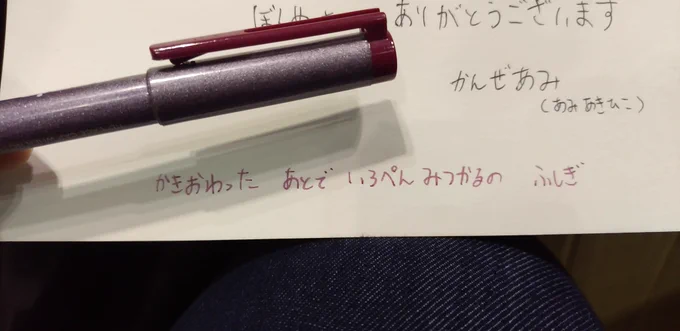 ありがとうございます
かんぜあみ
(あみあきひこ)
かきおわった あとで いろぺん みつかるの ふしぎ